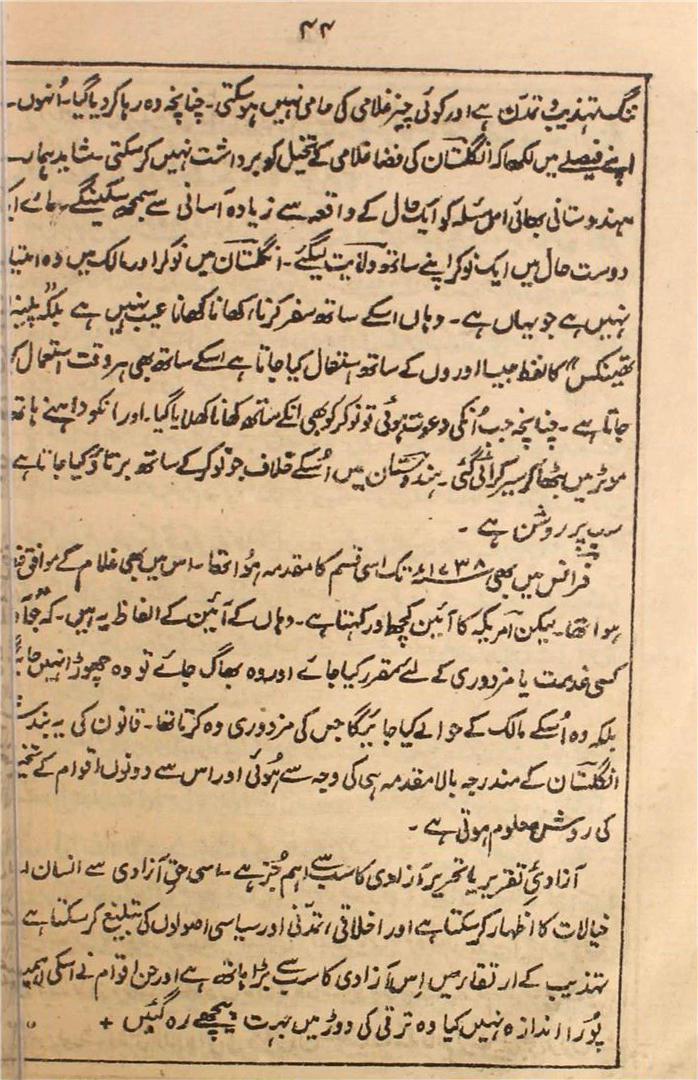 ۴۴
تنگ تہذیب و تمدن ہے اور کوئی چیز غلامی کی حامی نہیں ہوسکتی۔ چنانچہ وہ رہا کر دیا گیا۔ اُنہوں۔
اپنے فیصلے میں لکھا کہ انگلستان کی فضا غلامی کے تخیل کو برداشت نہیں کرسکتی۔ شاید ہمار
ہندوستانی بھائی اس مسئلہ کو ایک حال کے واقعہ سے زیادہ آسانی سے سمجھ سکینگے۔ ہمارے ایک
دوست حال میں ایک نوکر اپنے ساتھ ولایت لیگئے۔ انگلستان میں نوکر اور مالک میں وہ امتیا
نہیں ہے جو یہاں ہے۔ وہاں اسکے ساتھ سفر کرنا، کھانا کھانا عیب نہیں ہے بلکہ "پلیز"
تھینکس" کا لفظ جیسا اوروں کے ساتھ استعمال کیا جاتا ہے اسکے ساتھ بھی ہر وقت استعمال کی
جاتا ہے۔ چنانچہ جب اُنکی دعوت ہوئی تو نوکر کو بھی انکے ساتھ کھانا کھلایا گیا۔ اور انکو داہنے ہاتھ
موٹر میں بٹھا کر سیر کرائی گئی۔ ہندوستان میں اُسکے خلاف جو نوکر کے ساتھ برتاؤ کیا جاتا ہے
سب پر روشن ہے۔
فرانس میں بھی ۱۷۳۸ء تک اسی قسم کا مقدمہ ہوا تھا۔ اس میں بھی غلام کے موافق فیہ
ہوا تھا۔ لیکن امریکہ کا آئین کچھ اور کہتا ہے۔ وہاں کے آئین کے الفاظ یہ ہیں۔ کہ
کسی خدمت یا مزدوری کے لئے مقرر کیا جائے اور وہ بھاگ جائے تو وہ چھوڑا نہیں جا
بلکہ وہ اُسکے مالک کے حوالے کیا جائیگا جس کی مزدوری وہ کرتا تھا۔ قانون کی یہ بند
انگلستان کے مندرجہ بالا مقدمہ ہی کی وجہ سے ہوئی اور اس سے دونوں اقوام کے تخیل
کی روش معلوم ہوتی ہے۔
آزادیٔ تقریر یا تحریر آزادی کا سب سے اہم جُز ہے۔ اسی حقِ آزادی سے انسان ا
خیالات کا اظہار کرسکتا ہے اور اخلاقی، تمدّنی اور سیاسی اصولوں کی تبلیغ کرسکتا ہے
تہذیب کے ارتقار میں اِس آزادی کا سب سے بڑا ہاتھ ہے اور جن اقوام نے اسکی اہمیت
پُورا اندازہ نہیں کیا وہ ترقی کی دوڑ میں بہت پیچھے رہ گئیں +